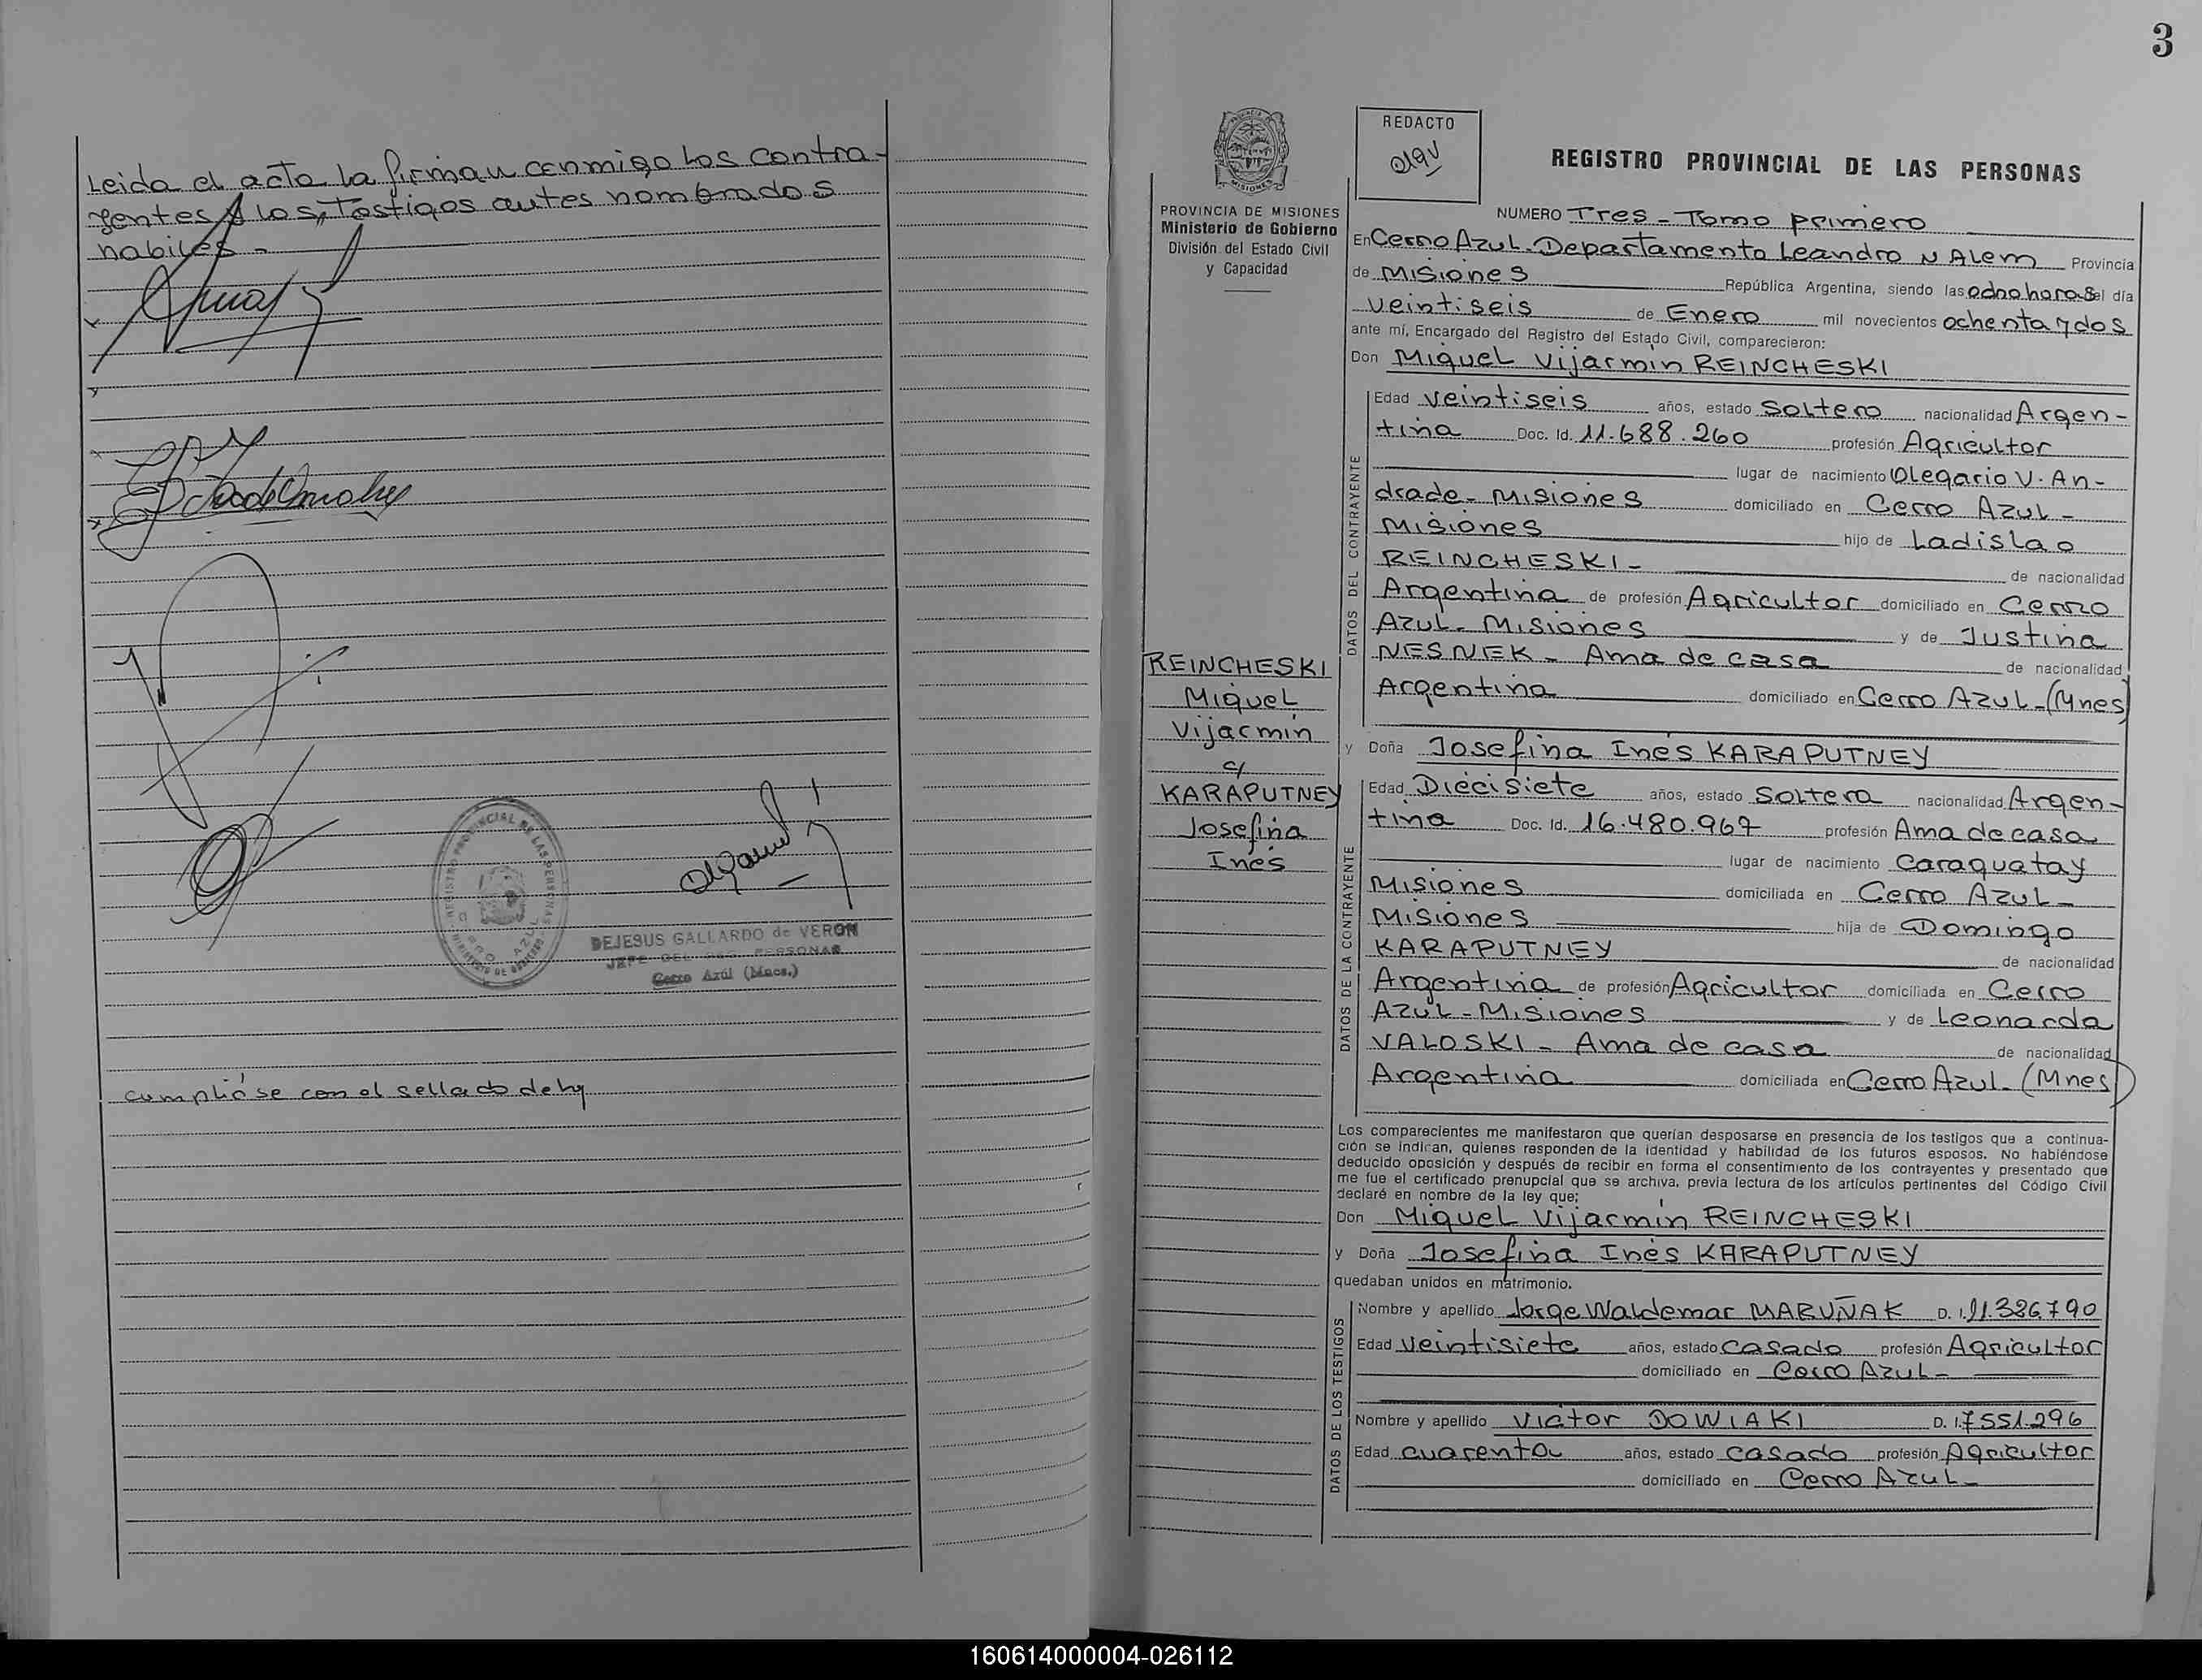 Leida el acta la firman conmigo los contra-
yentes y los Testigos antes nombrados
habiles -
REGISTRO PROVINCIAL DE LAS PERSONAS
DEJESUS GALLARDO de VERON
JEFE DEL REG. PERSONAS
Cerro Azúl (Mnes.)
cumplióse con el sellado de ley
3
MISIONES
PROVINCIA DE MISIONES
Ministerio de Gobierno
División del Estado Civil
y Capacidad
REDACTO
REGISTRO PROVINCIAL DE LAS PERSONAS
NUMERO Tres - Tomo primero
En Cerro Azul - Departamento Leandro N Alem Provincia
de Misiones República Argentina, siendo las ocho horas del día
veintiseis de Enero mil novecientos ochenta y dos
ante mí, Encargado del Registro del Estado Civil, comparecieron:
Don Miguel Vijarmin REINCHESKI
DATOS DEL CONTRAYENTE
Edad veintiseis años, estado Soltero nacionalidad Argen-
tina Doc. Id. 11.688.260 profesión Agricultor
lugar de nacimiento Olegario V. An-
drade - Misiones domiciliado en Cerro Azul -
Misiones hijo de Ladislao
REINCHESKI - de nacionalidad
Argentina de profesión Agricultor domiciliado en Cerro
Azul - Misiones y de Justina
NESNEK - Ama de casa de nacionalidad
Argentina domiciliado en Cerro Azul - (Mnes)
REINCHESKI
Miguel
Vijarmin
c/
KARAPUTNEY
Josefina
Inés
y Doña Josefina Inés KARAPUTNEY
DATOS DE LA CONTRAYENTE
Edad Diecisiete años, estado Soltera nacionalidad Argen-
tina Doc. Id. 16.480.967 profesión Ama de casa
lugar de nacimiento Caraguatay
Misiones domiciliada en Cerro Azul -
Misiones hija de Domingo
KARAPUTNEY de nacionalidad
Argentina de profesión Agricultor domiciliada en Cerro
Azul - Misiones y de Leonarda
VALOSKI - Ama de casa de nacionalidad
Argentina domiciliada en Cerro Azul - (Mnes)
Los comparecientes me manifestaron que querían desposarse en presencia de los testigos que a continua-
ción se indican, quienes responden de la identidad y habilidad de los futuros esposos. No habiéndose
deducido oposición y después de recibir en forma el consentimiento de los contrayentes y presentado que
me fue el certificado prenupcial que se archiva, previa lectura de los artículos pertinentes del Código Civil
declaré en nombre de la ley que:
Don Miguel Vijarmin REINCHESKI
y Doña Josefina Inés KARAPUTNEY
quedaban unidos en matrimonio.
DATOS DE LOS TESTIGOS
Nombre y apellido Jorge Waldemar MARUÑAK D. I. 11.326.790
Edad veintisiete años, estado casado profesión Agricultor
domiciliado en Cerro Azul -
Nombre y apellido Victor DOWIAKI D. I. 7551.296
Edad cuarenta años, estado casado profesión Agricultor
domiciliado en Cerro Azul -
160614000004-026112